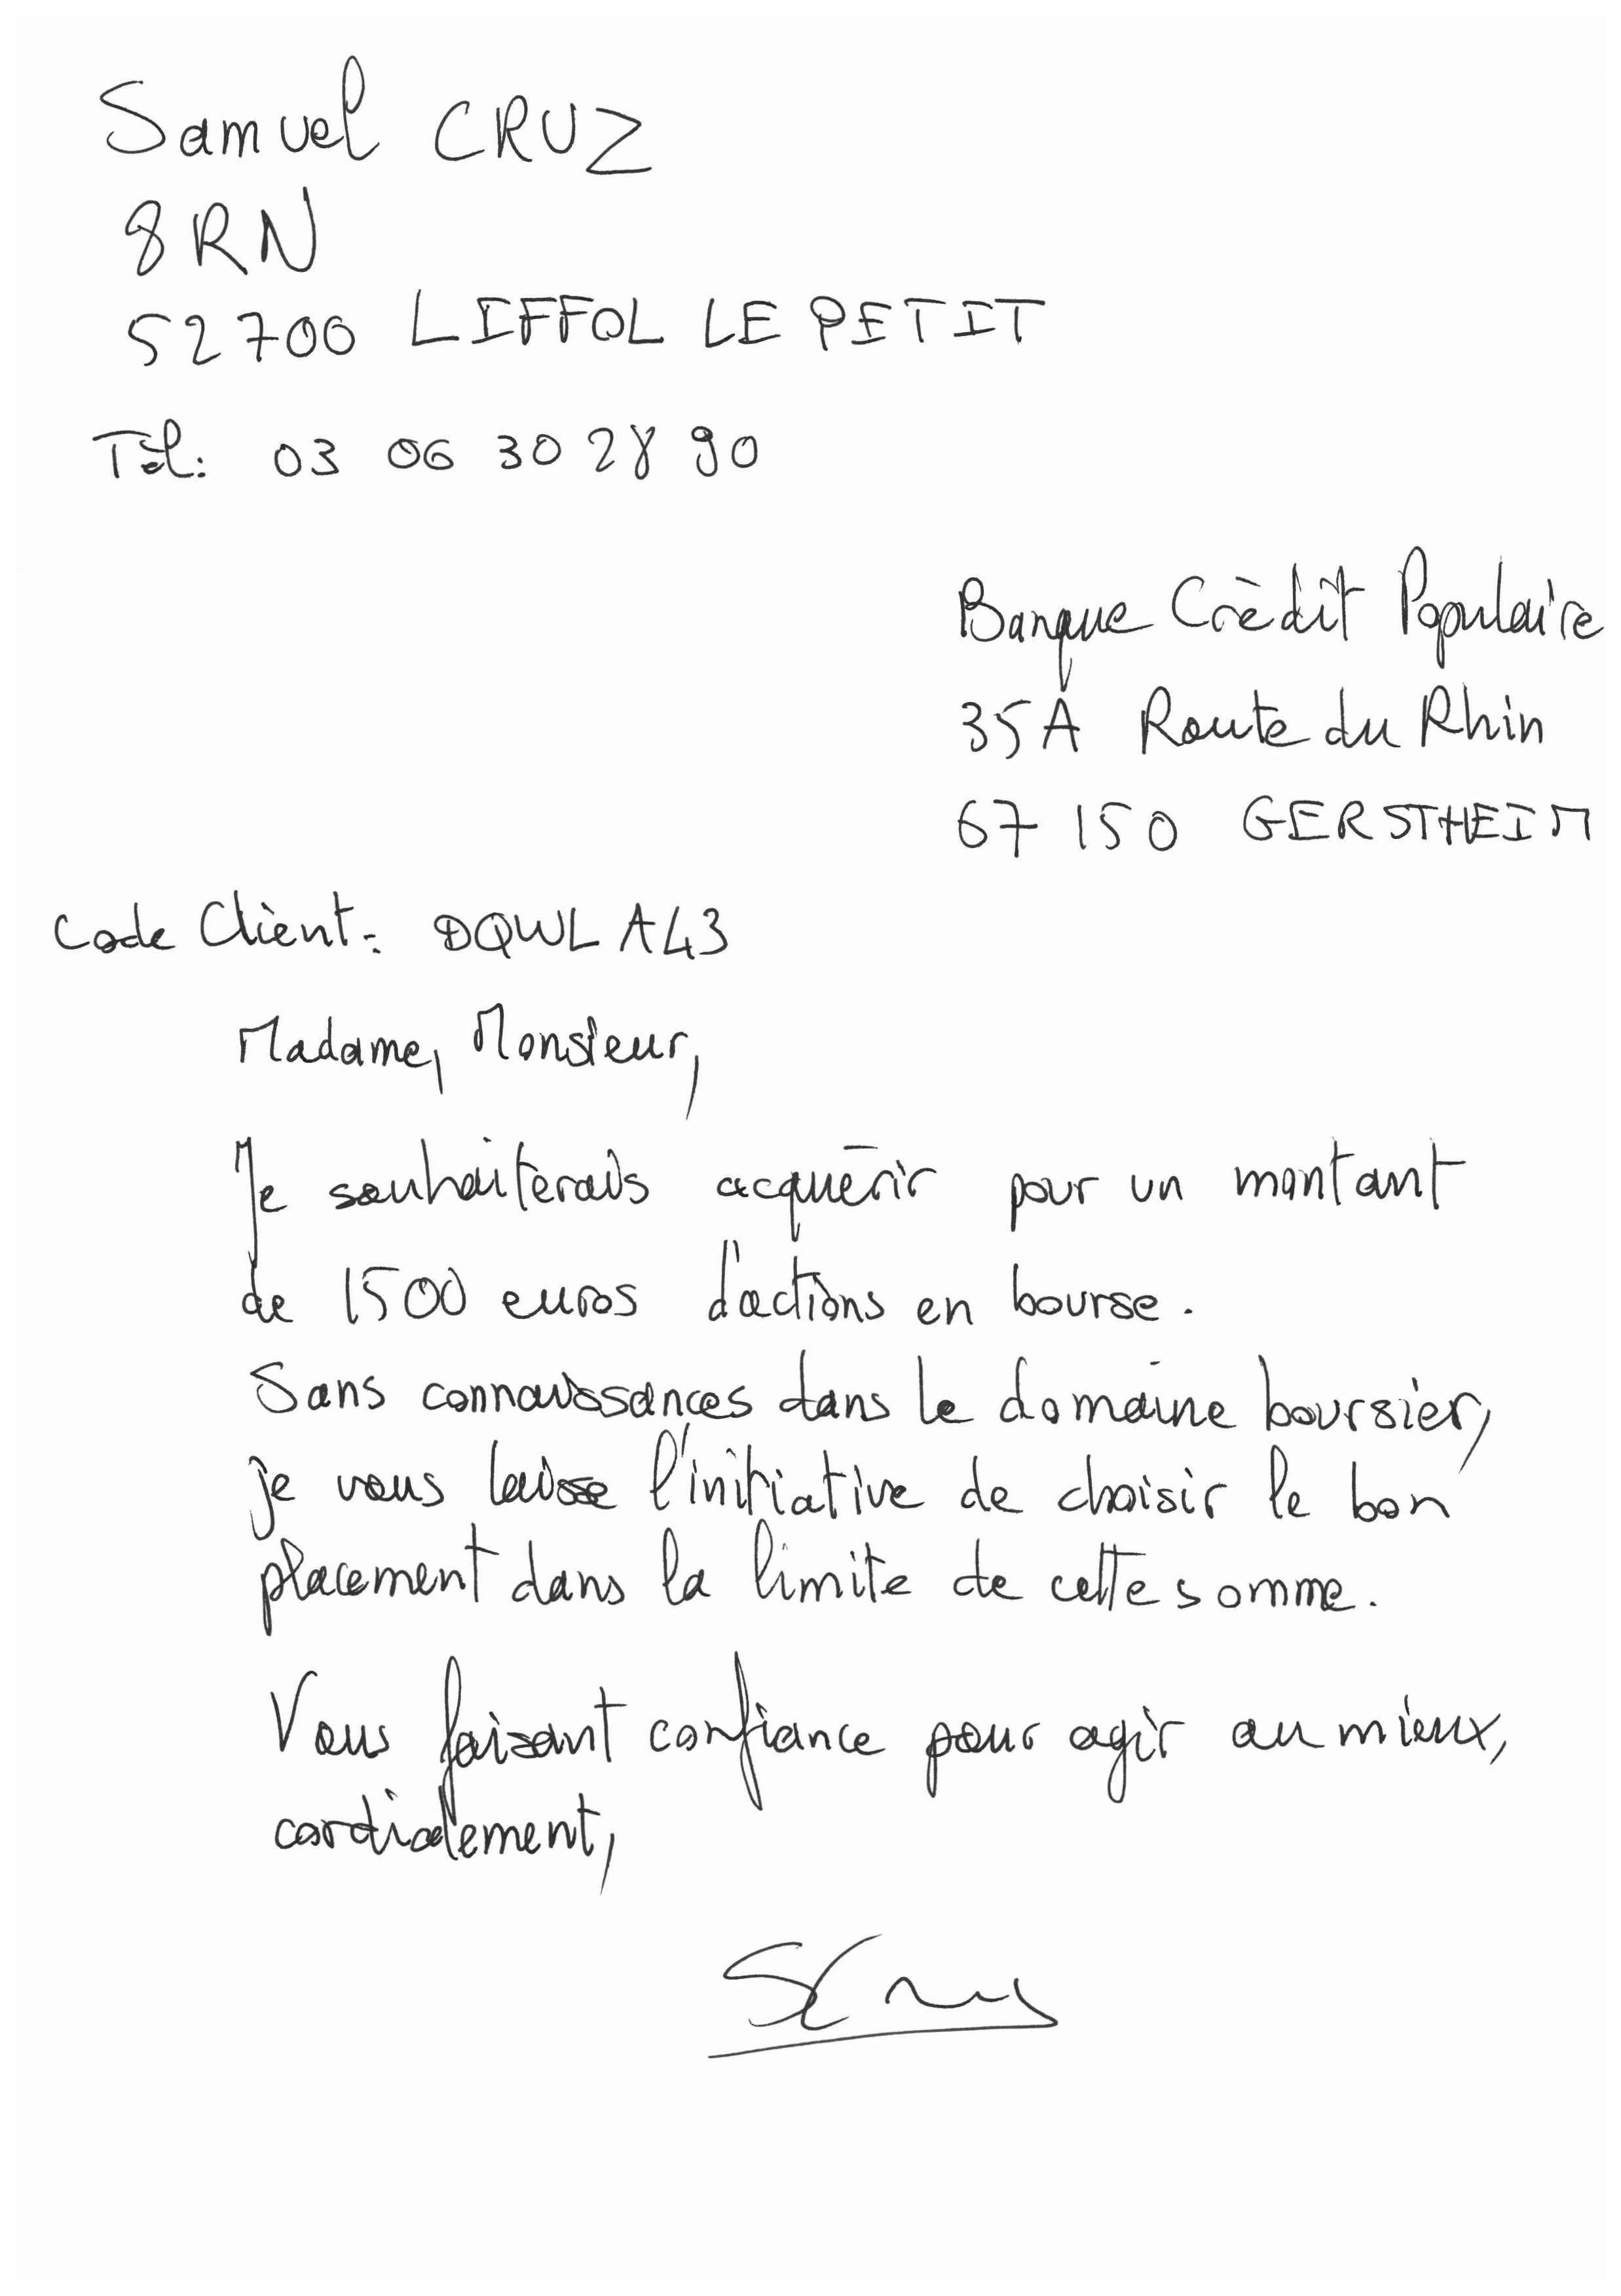 Samuel CRUZ
8 RN
52700 LIFFOL LE PETIT
Tél: 03 06 30 28 90
Banque Crédit Populaire
35A Route du Rhin
67150 GERSTHEIM
Code Client: DQWLA43
Madame, Monsieur,
Je souhaiterais acquérir pour un montant
de 1500 euros d'actions en bourse.
Sans connaissances dans le domaine boursier,
je vous laisse l'initiative de choisir le bon
placement dans la limite de cette somme.
Vous faisant confiance pour agir au mieux,
cordialement,